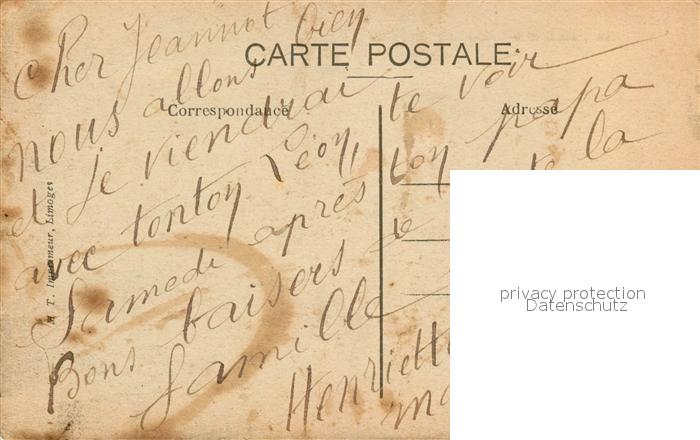 CARTE POSTALE
Correspondance
Adresse
M. T. Imprimeur, Limoges
Cher Jeannot
nous allons bien
et je viendrai te voir
avec tonton Léon, ton papa
Samedi après
Bons baisers de la
famille
Henriette
privacy protection
Datenschutz